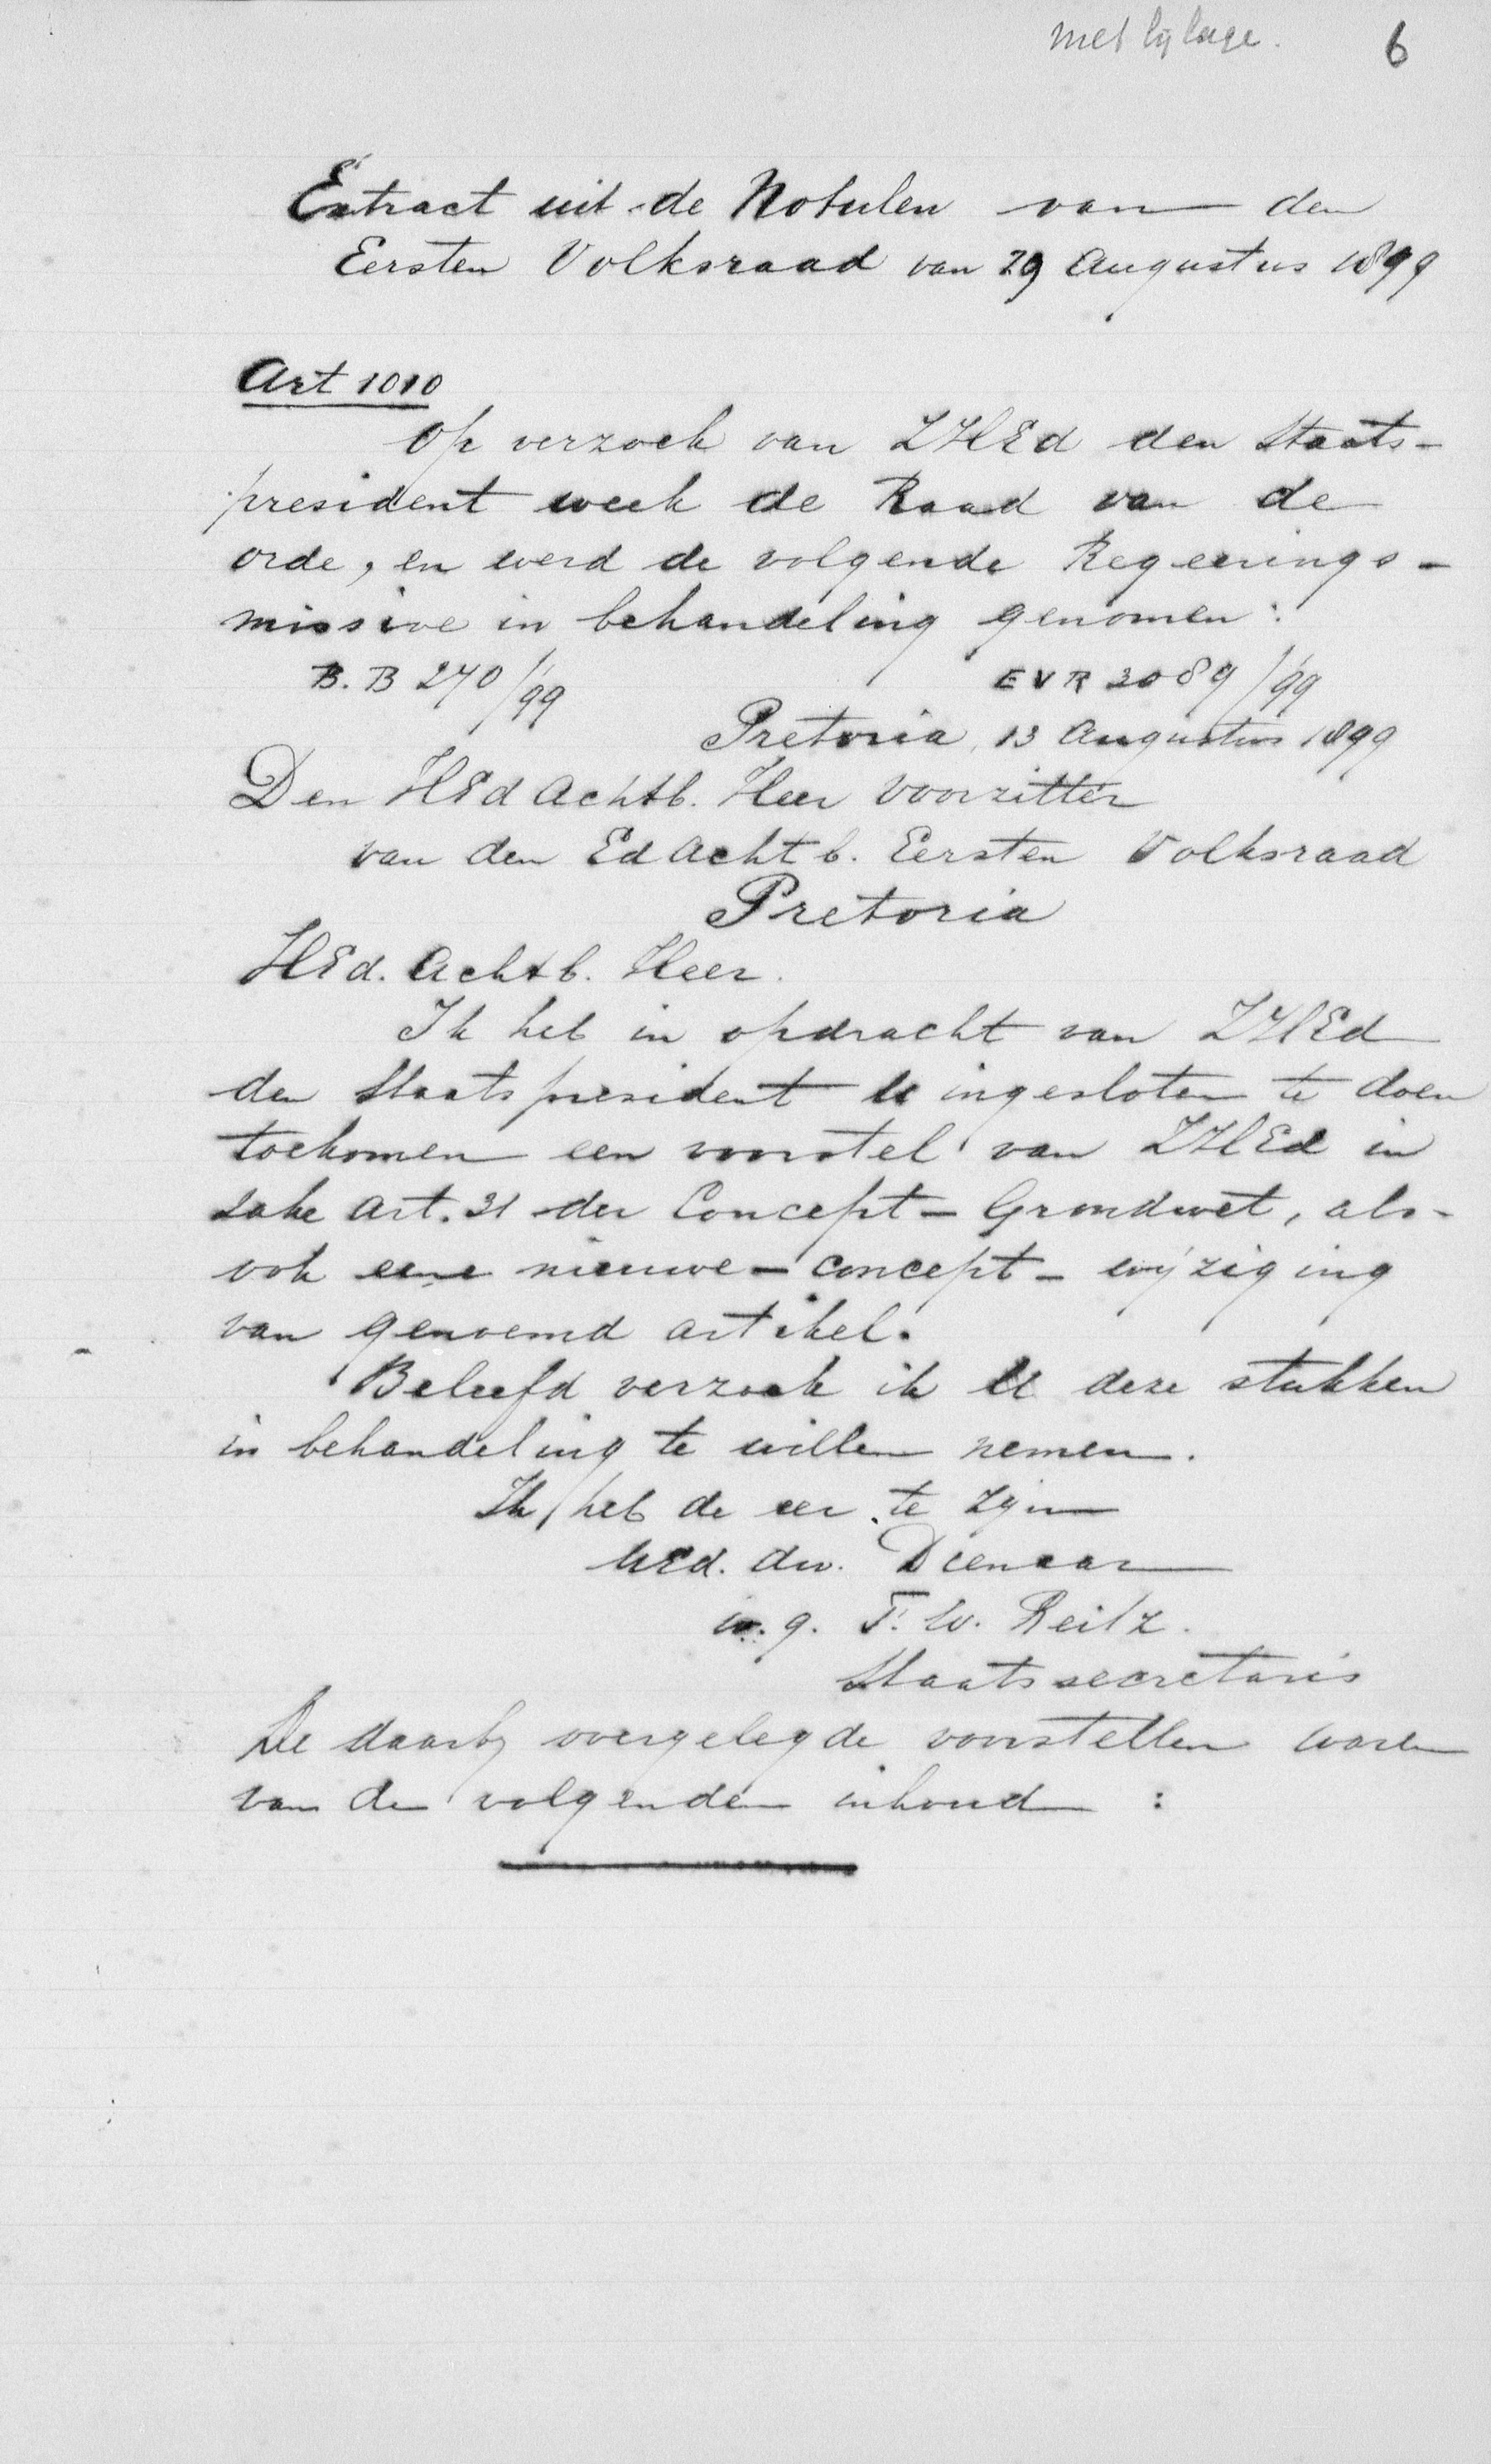 met bylage. 6
Extract uit de Notulen van den
Eersten Volksraad van 29 Augustus 1899
Art 1010
Op verzoek van ZHEd den Staats-
president week de Raad van de
orde, en werd de volgende Regeerings-
missive in behandeling genomen:
B.B 270/99 EVR 2089/99
Pretoria, 13 Augustus 1899
Den HEd Achtb. Heer Voorzitter
van den Ed Achtb. Eersten Volksraad
Pretoria
HEd. Achtb. Heer.
Ik heb in opdracht van ZHEd
den Staatspresident U ingesloten te doen
toekomen een voorstel van ZHEd in
sake Art. 31 der Concept-Grondwet, als-
ook eene nieuwe-concept-wijziging
van genoemd artikel.
Beleefd verzoek ik U deze stukken
in behandeling te willen nemen.
Ik heb de eer te zijn
UEd. dw. Dienaar
w.g. F.W. Reitz.
Staatssecretaris
De daarby overgelegde voorstellen waren
van den volgenden inhoud: